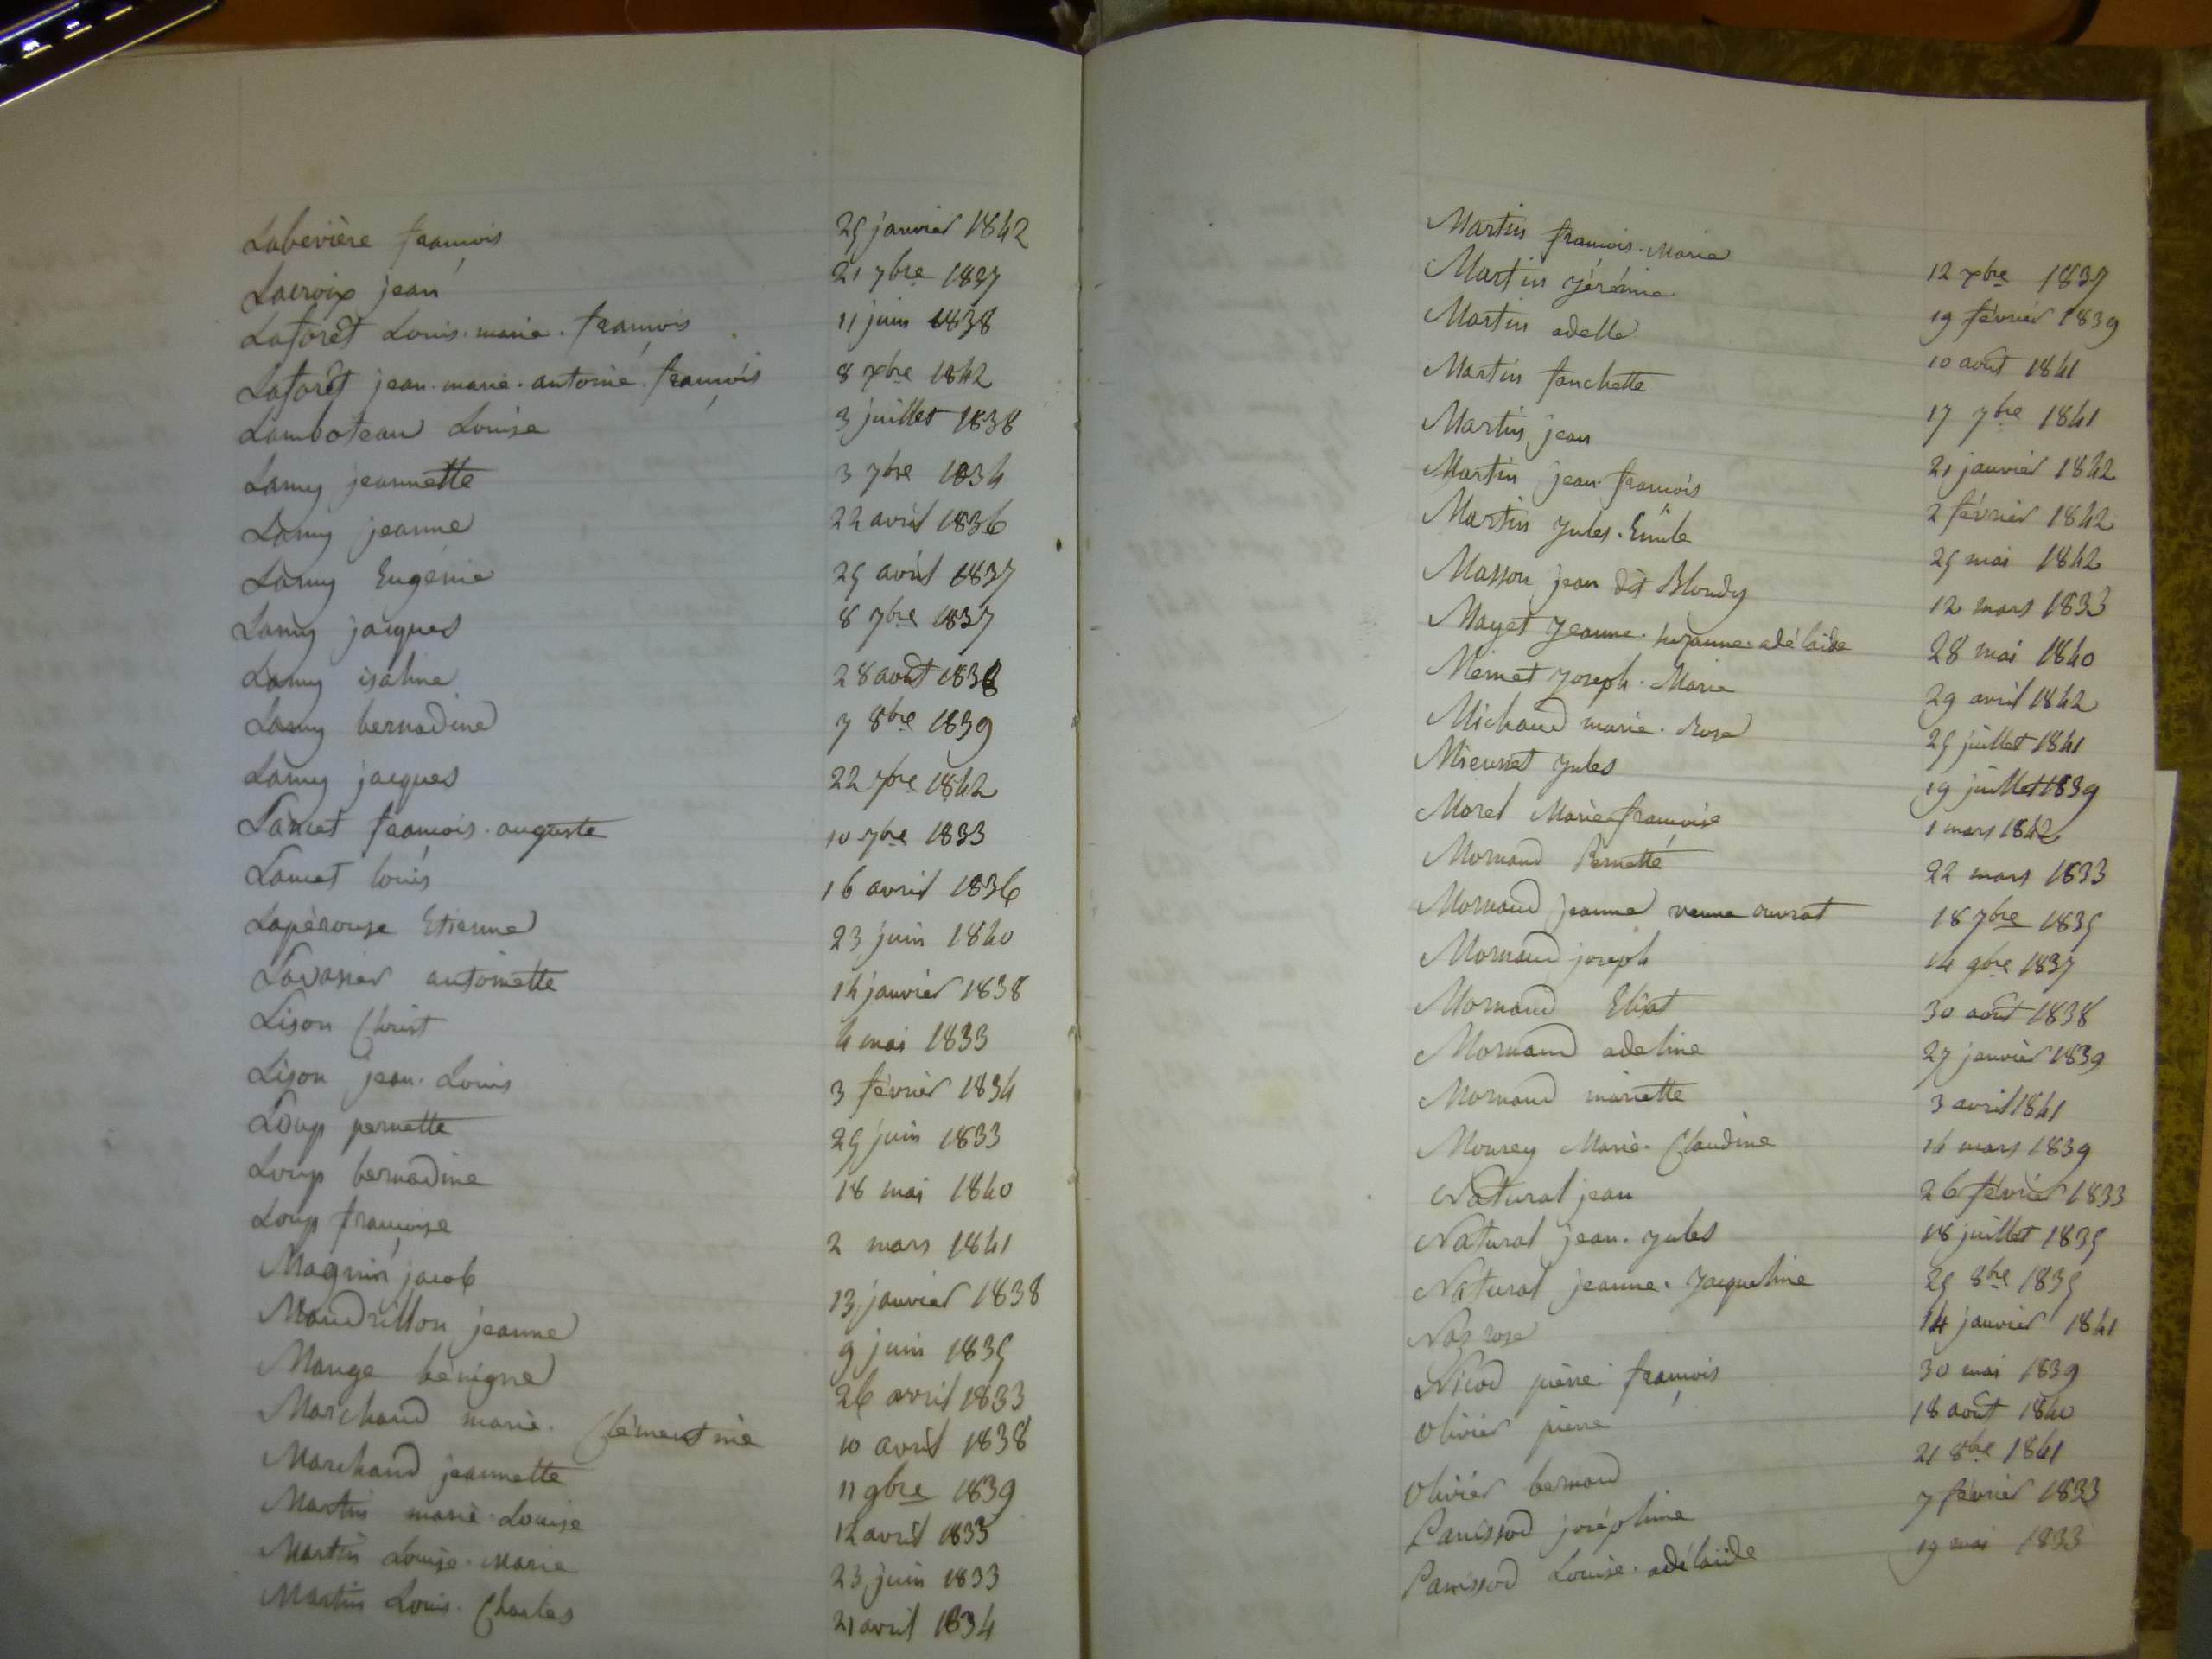 Labevière françois 25 janvier 1842
Lacroix jean 21 7bre 1837
Laforêt Louis. marie. françois 11 juin 1838
Laforêt jean. marie. antoine. françois 8 xbre 1842
Lamboteau Louise 3 juillet 1838
Lamy jeannette 3 7bre 1834
Lamy jeanne 22 avril 1836
Lamy Eugénie 25 avril 1837
Lamy jacques 8 7bre 1837
Lamy isaline 28 août 1838
Lamy bernadine 7 8bre 1839
Lamy jacques 22 7bre 1842
Lancet françois. auguste 10 7bre 1833
Lancet louis 16 avril 1836
Lapérouse Etienne 23 juin 1840
Lavanier antoinette 14 janvier 1838
Lison Christ 4 mai 1833
Lison jean. Louis 3 février 1834
Loup pernette 25 juin 1833
Loup bernadine 18 mai 1840
Loup françoise 2 mars 1841
Magnin jacob 13 janvier 1838
Mandrillon jeanne 9 juin 1835
Mange bénigne 26 avril 1833
Marchand marie. Clémentine 10 avril 1838
Marchand jeannette 11 9bre 1839
Martin marie. Louise 12 avril 1833
Martin Louise. Marie 23 juin 1833
Martin Louis. Charles 21 avril 1834
Martin françois. Marie 12 xbre 1837
Martin Jérémie 19 février 1839
Martin adelle 10 août 1841
Martin fanchette 17 7bre 1841
Martin jean 21 janvier 1842
Martin jean françois 2 février 1842
Martin Jules. Emile 25 mai 1842
Masson jean dit Blondy 12 mars 1833
Mayet Jeanne. suzanne. adélaïde 28 mai 1840
Mermet Joseph. Marie 29 avril 1842
Michaud marie. Rose 25 juillet 1841
Mieusset Jules 19 juillet 1839
Morel Marie françoise 1 mars 1842
Mornand Pernette 22 mars 1833
Mornand Jeanne veuve ouvrat 18 7bre 1835
Mornand joseph 14 9bre 1837
Mornand Elisat 30 août 1838
Mornand adeline 27 janvier 1839
Mornand mariette 3 avril 1841
Mourey Marie. Claudine 14 mars 1839
Natural jean 26 février 1833
Natural jean. Jules 18 juillet 1835
Natural jeanne. Jacqueline 25 8bre 1835
Nas rose 14 janvier 1841
Nicod pierre. françois 30 mai 1839
Olivier pierre 18 août 1840
Olivier bernard 21 8bre 1841
Panissod joséphine 7 février 1833
Panissod Louise. adélaïde 19 mai 1833